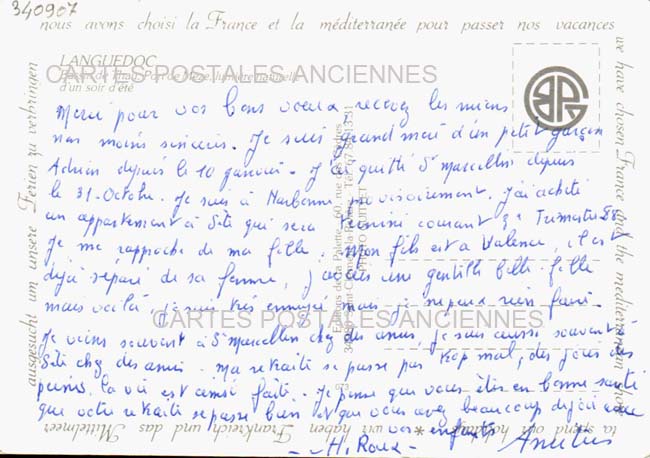 340907
nous avons choisi la France et la méditerranée pour passer nos vacances
LANGUEDOC
Bassin de Thau, Port de Mèze, lumière naturelle
d'un soir d'été
CARTES POSTALES ANCIENNES
Merci pour vos bons voeux, recevez les miens
non moins sincères. Je suis grand mère d'un petit garçon
Adrien depuis le 10 janvier. J'ai quitté St Marcellin depuis
le 31 Octobre. Je suis à Narbonne provisoirement. J'ai acheté
un appartement à Sète qui sera terminé courant 3e Trimestre 88
Je me rapproche de ma fille. Mon fils est à Valence, il est
déjà séparé de sa femme, j'avais une gentille belle-fille
mais voilà, je suis très ennuyé mais je ne peux rien faire.
CARTES POSTALES ANCIENNES
Je viens souvent à St Marcellin chez des amis, je suis aussi souvent à
Sète chez des amis. Ma retraite se passe pas trop mal, des joies des
peines la vie est ainsi faite. Je pense que vous êtes en bonne santé
que votre retraite se passe bien et que vous avez beaucoup de joie avec
vos enfants
H. Roux Amitiés
we have chosen France and the mediterranean shore
to spend our holidays
ausgesucht um unsere Ferien zu verbringen
wir haben Frankreich und das Mittelmeer